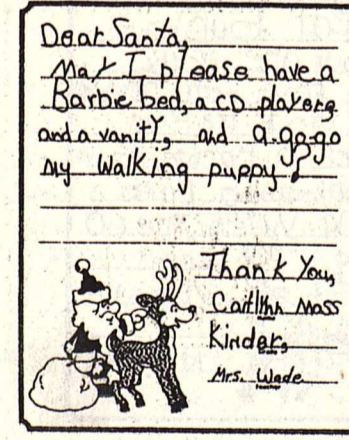 Dear Santa,
May I please have a
Barbie bed, a CD player,
and a vanity, and a go-go
my walking puppy?
Thank You,
Caitlynn Moss
Kinder,
Mrs. Wade
Teacher